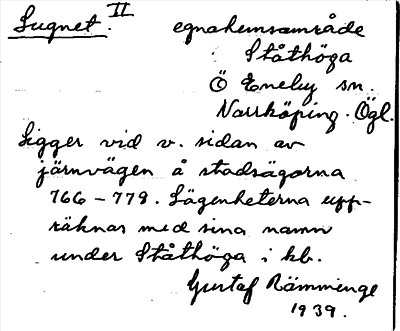 Lugnet. II egnahemsområde
Ståthöga
Ö Eneby sn.
Norrköping. Ögl.
Ligger vid v. sidan av
järnvägen å stadsägorna
766-779. Lägenheterna upp-
räknas med sina namn
under Ståthöga i kb.
Gustaf Rämminge
1939.